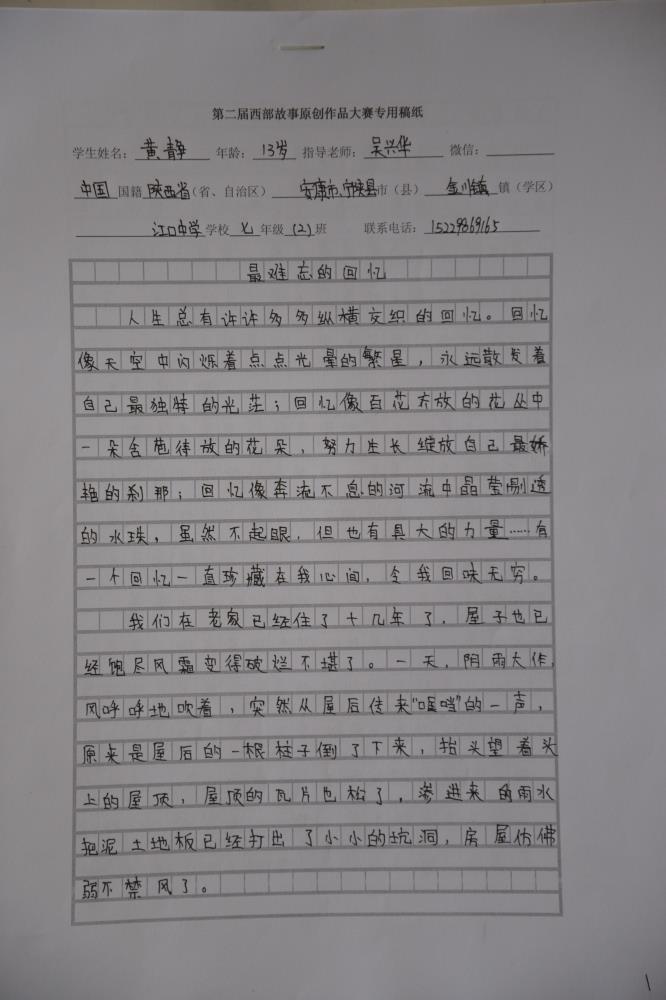 第二届西部故事原创作品大赛专用稿纸
学生姓名：黄静 年龄：13岁 指导老师：吴兴华 微信：
中国国籍 陕西省（省、自治区） 安康市、宁陕县市（县） 金川镇镇（学区）
江口中学学校 七年级（2）班 联系电话：15229869165
最难忘的回忆
人生总有许许多多纵横交织的回忆。回忆
像天空中闪烁着点点光晕的繁星，永远散发着
自己最独特的光茫；回忆像百花齐放的花丛中
一朵含苞待放的花朵，努力生长绽放自己最娇
艳的刹那；回忆像奔流不息的河流中晶莹剔透
的水珠，虽然不起眼，但也有具大的力量……有
一个回忆一直珍藏在我心间，令我回味无穷。
我们在老家已经住了十几年了，屋子也已
经饱尽风霜变得破烂不堪了。一天，阴雨大作，
风呼呼地吹着，突然从屋后传来“哐当”的一声，
原来是屋后的一根柱子倒了下来，抬头望着头
上的屋顶，屋顶的瓦片也松了，渗进来的雨水
把泥土地板已经打出了小小的坑洞，房屋仿佛
弱不禁风了。
1